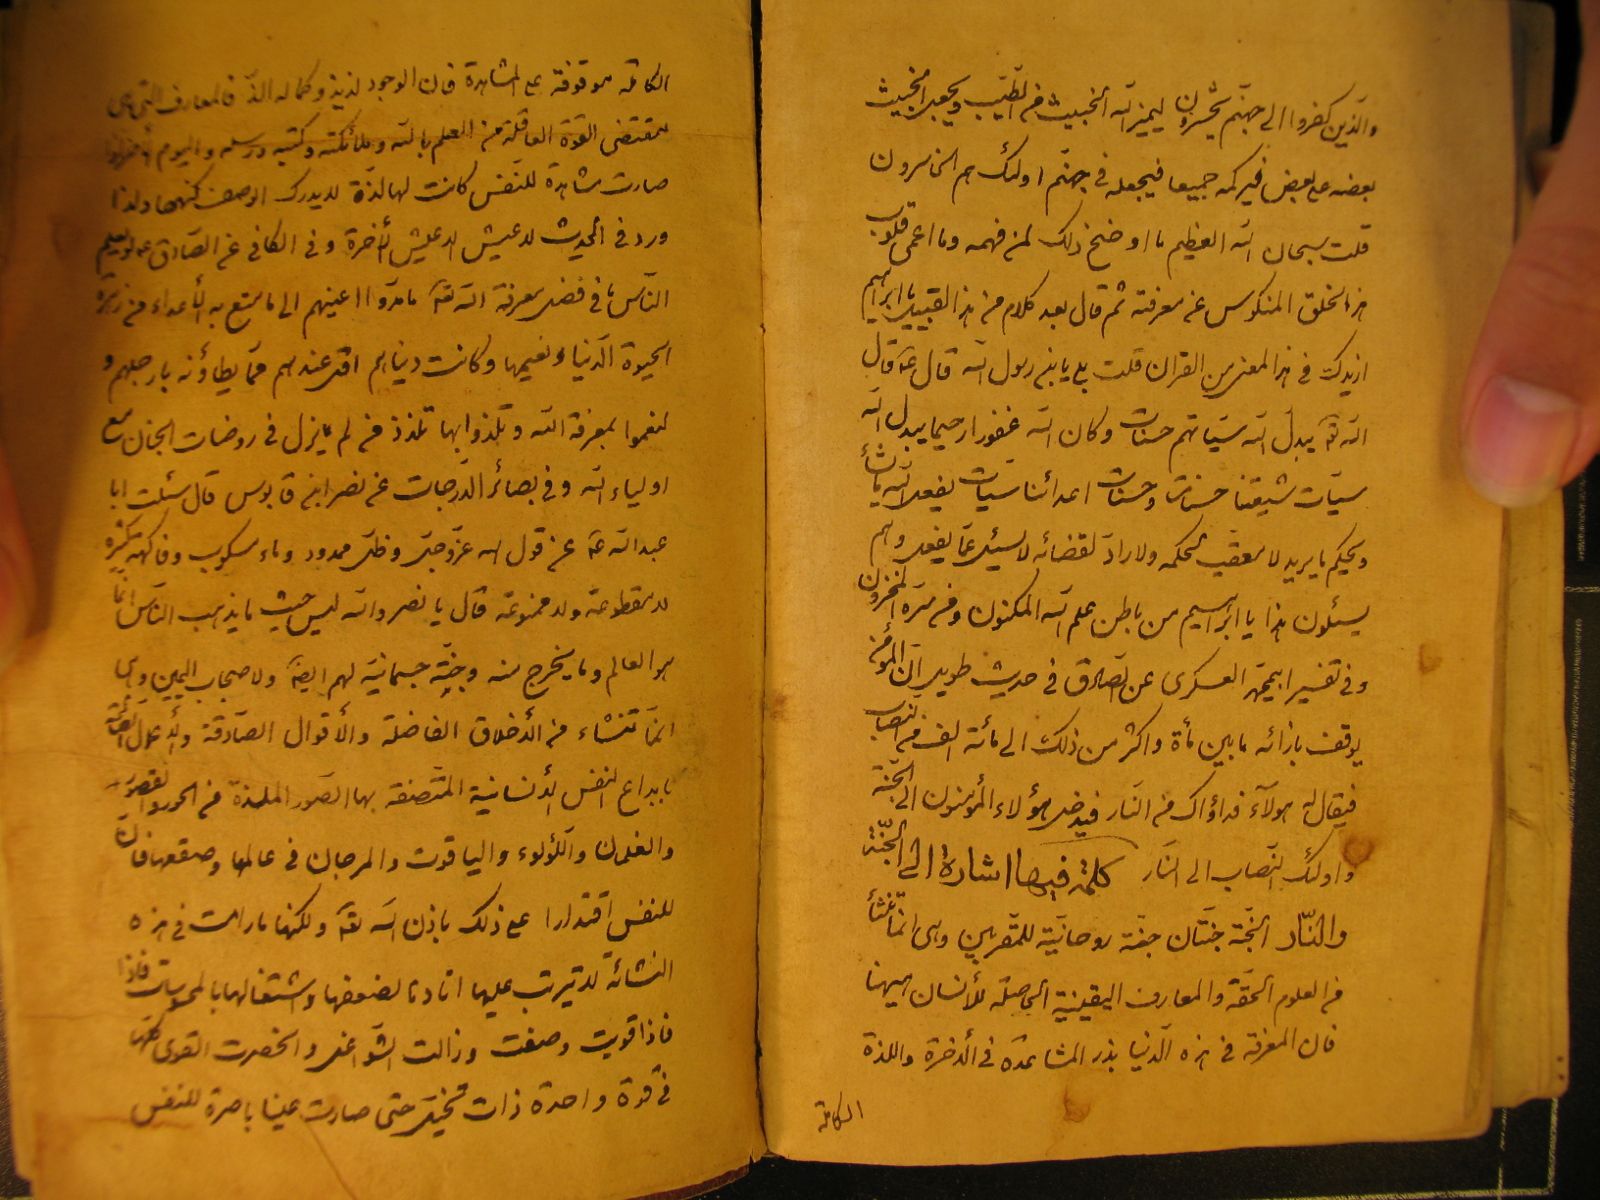 والذين كفروا الى جهنم يحشرون ليميز الله الخبيث من الطيب ويجعل الخبيث
بعضه على بعض فيركمه جميعا فيجعله في جهنم اولئك هم الخاسرون
قلت سبحان الله العظيم ما اوضح ذلك لمن فهمه وما اعمى قلوب
هذا الخلق المنكوس عن معرفته ثم قال بعد كلام من هذا القبيل يا ابراهيم
ازيدك في هذا المعنى من القرآن قلت بلى يا بن رسول الله قال ع قال
الله تع يبدل الله سيئاتهم حسنات وكان الله غفورا رحيما يبدل الله
سيآت شيعتنا حسنات وحسنات اعدائنا سيآت يفعل الله ما يشاء
ويحكم ما يريد لا معقب لحكمه ولا راد لقضائه لا يسئل عما يفعل وهم
يسئلون هذا يا ابراهيم من باطن علم الله المكنون ومن سره المخزون
وفي تفسير ابيمحمد العسكرى عن الصادق في حديث طويل ان المؤمن
يوقف بازائه ما بين مأة واكثر من ذلك الى مائة الف من النصاب
فيقال له هولآء فداؤك من النار فيدخل هؤلاء المؤمنون الى الجنة
واولئك النصاب الى النار كلمة فيها اشارة الى الجنة
والنار الجنة جنتان جنة روحانية للمقربين وهى انما تنشأ
من العلوم الحقة والمعارف اليقينية الحاصلة للأنسان هيهنا
فان المعرفة في هذه الدنيا بذر المشاهدة في الأخرة واللذة
الكاملة
الكاملة موقوفة على المشاهدة فان الوجود لذيذ وكماله الذ فالمعارف التي هى
مقتضى القوة العاقلة من العلم بالله وملائكته وكتبه ورسله واليوم الأخر اذا
صارت مشاهدة للنفس كانت لها لذة لا يدرك الوصف كنهها ولذا
ورد في الحديث لا عيش الا عيش الأخرة وفي الكافي عن الصادق ع لو يعلم
الناس ما في فضل معرفة الله تع ما مدوا اعينهم الى ما متع به الأعداء من زهرة
الحيوة الدنيا ونعيمها وكانت دنياهم اقل عندهم مما يطاؤنه بارجلهم و
لنعموا بمعرفة الله وتلذذوا بها تلذذ من لم يزل في روضات الجنان مع
اولياء الله وفي بصائر الدرجات عن نصر ابن قابوس قال سئلت ابا
عبد الله ع عن قول الله عز وجل وظل ممدود وماء مسكوب وفاكهة كثيرة
لا مقطوعة ولا ممنوعة قال يا نصر والله ليس حيث ما يذهب الناس انما
هو العالم وما يخرج منه وجنة جسمانية لهم ايضا ولاصحاب اليمين وهى
انما تنشاء من الأخلاق الفاضلة والأقوال الصادقة والأعمال الصالحة
بابداع النفس الأنسانية المتصفة بها الصور الملذة من الحور والقصور
والغلمان واللؤلوء والياقوت والمرجان في عالمها وصقعها فان
للنفس اقتدارا على ذلك باذن الله تع ولكنها ما دامت في هذه
النشائة لا تترتب عليها اثارها لضعفها واشتغالها بالمحسوسات فاذا
فاذا قويت وصفت وزالت الشواغل وانحصرت القوى كلها
في قوة واحدة ذات تخيل حتى صارت عينا باصرة للنفس